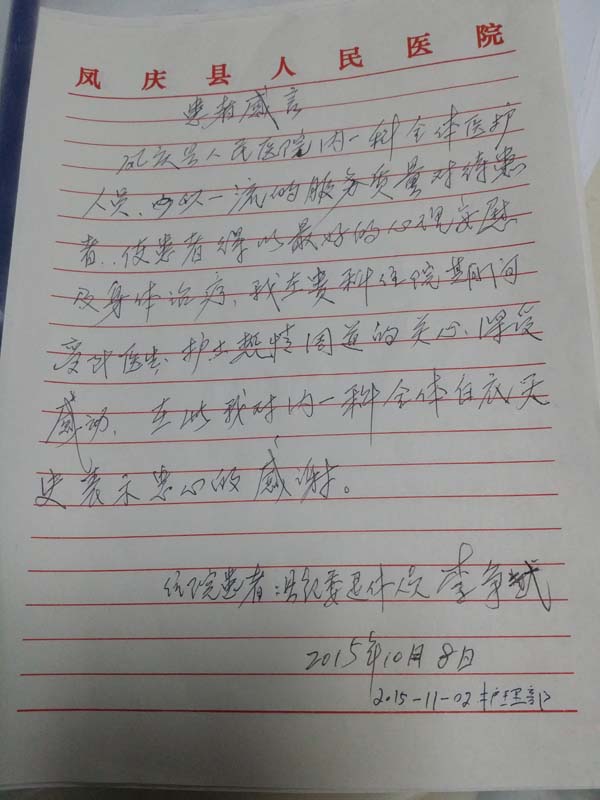 凤庆县人民医院
患者感言
凤庆县人民医院内一科全体医护
人员、以一流的服务质量对待患
者、使患者得以最好的心理安慰
及身体治疗，我在贵科住院其期间
受到医生、护士热情周道的关心、深受
感动，在此我对内一科全体白衣天
史表示忠心的感谢。
住院患者：县纪委退休员 李
2015年10月8日
2015-11-02 护理部